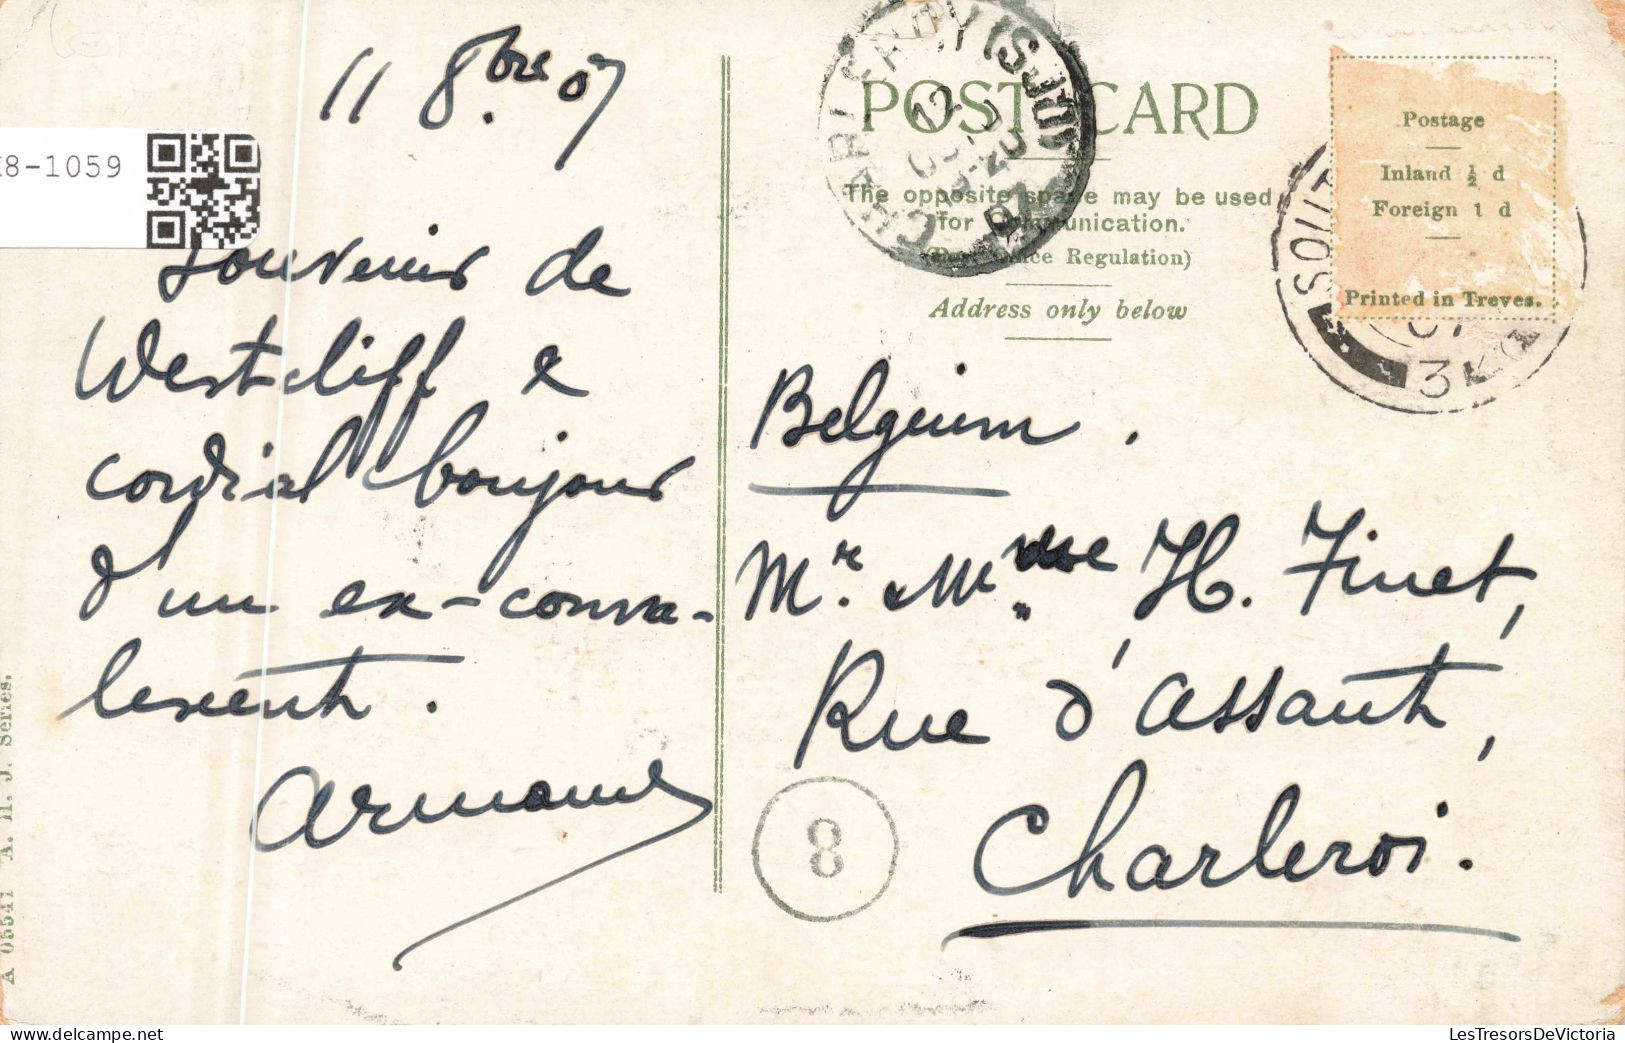 11 8bre 07
8-1059
Souvenir de
Westcliff &
cordial bonjour
d'un ex-conva-
lescent.
Armand
POST CARD
The opposite space may be used
for Communication.
(Post Office Regulation)
Address only below
CHARLEROY (SUD)
12
Postage
Inland ½ d
Foreign 1 d
Printed in Treves.
SOUT
07
3
Belgium.
Mr. & Mme H. Finet,
Rue d'Assaut,
Charleroi.
8
A 05541 A. H. J. Series.
LesTresorsDeVictoria.com